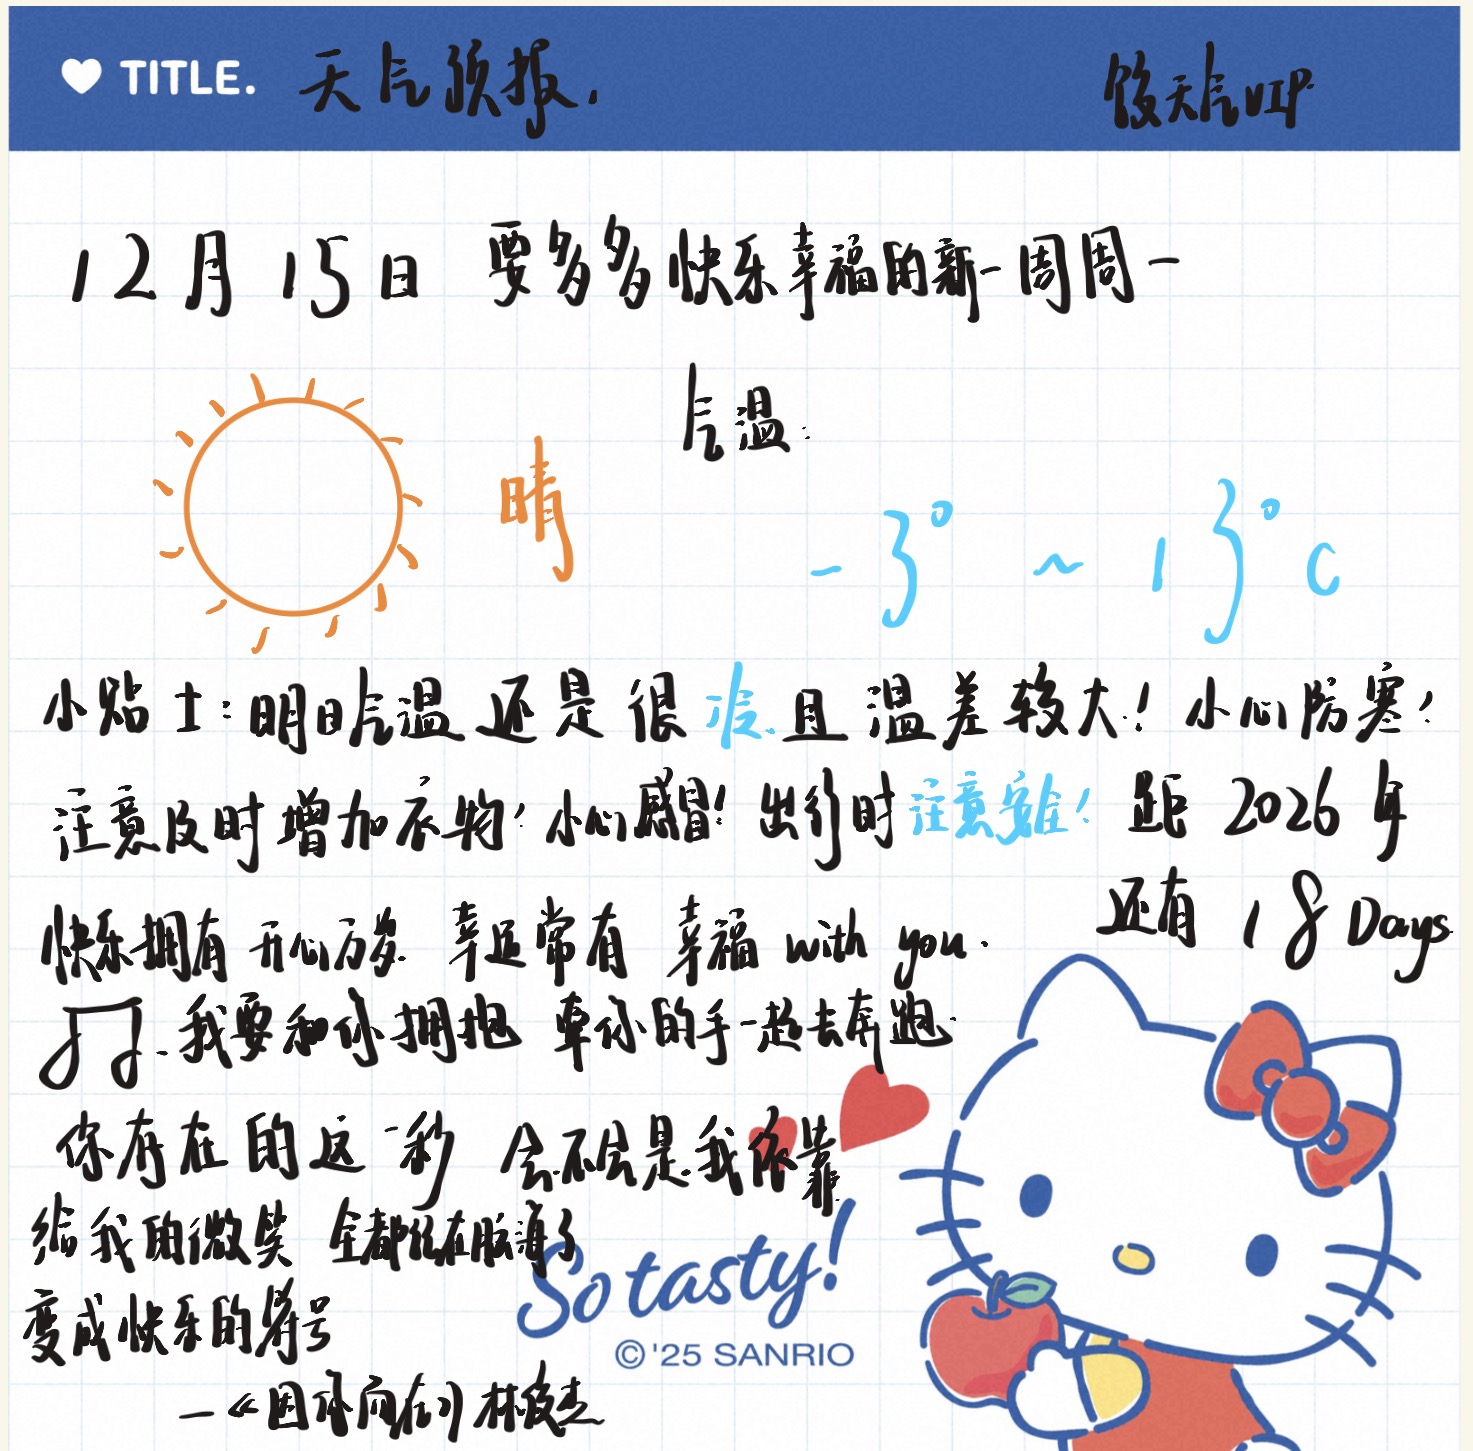 TITLE. 天气预报.
天气VIP
12月15日 要多多快乐幸福的新一周周一
晴
气温:
-3° ~ 13°C
小贴士:明日气温还是很凉.且温差较大!小心防寒!
注意及时增加衣物!小心感冒!出行时注意安全! 距2026年
还有18Days
快乐拥有 开心万岁 幸运常有 幸福 with you.
我要和你拥抱 牵你的手一起去奔跑
你存在的这一秒 会不会是我依靠
给我的微笑 全都住在脑海了
变成快乐的符号
—《因你而在》林俊杰
So tasty!
© '25 SANRIO